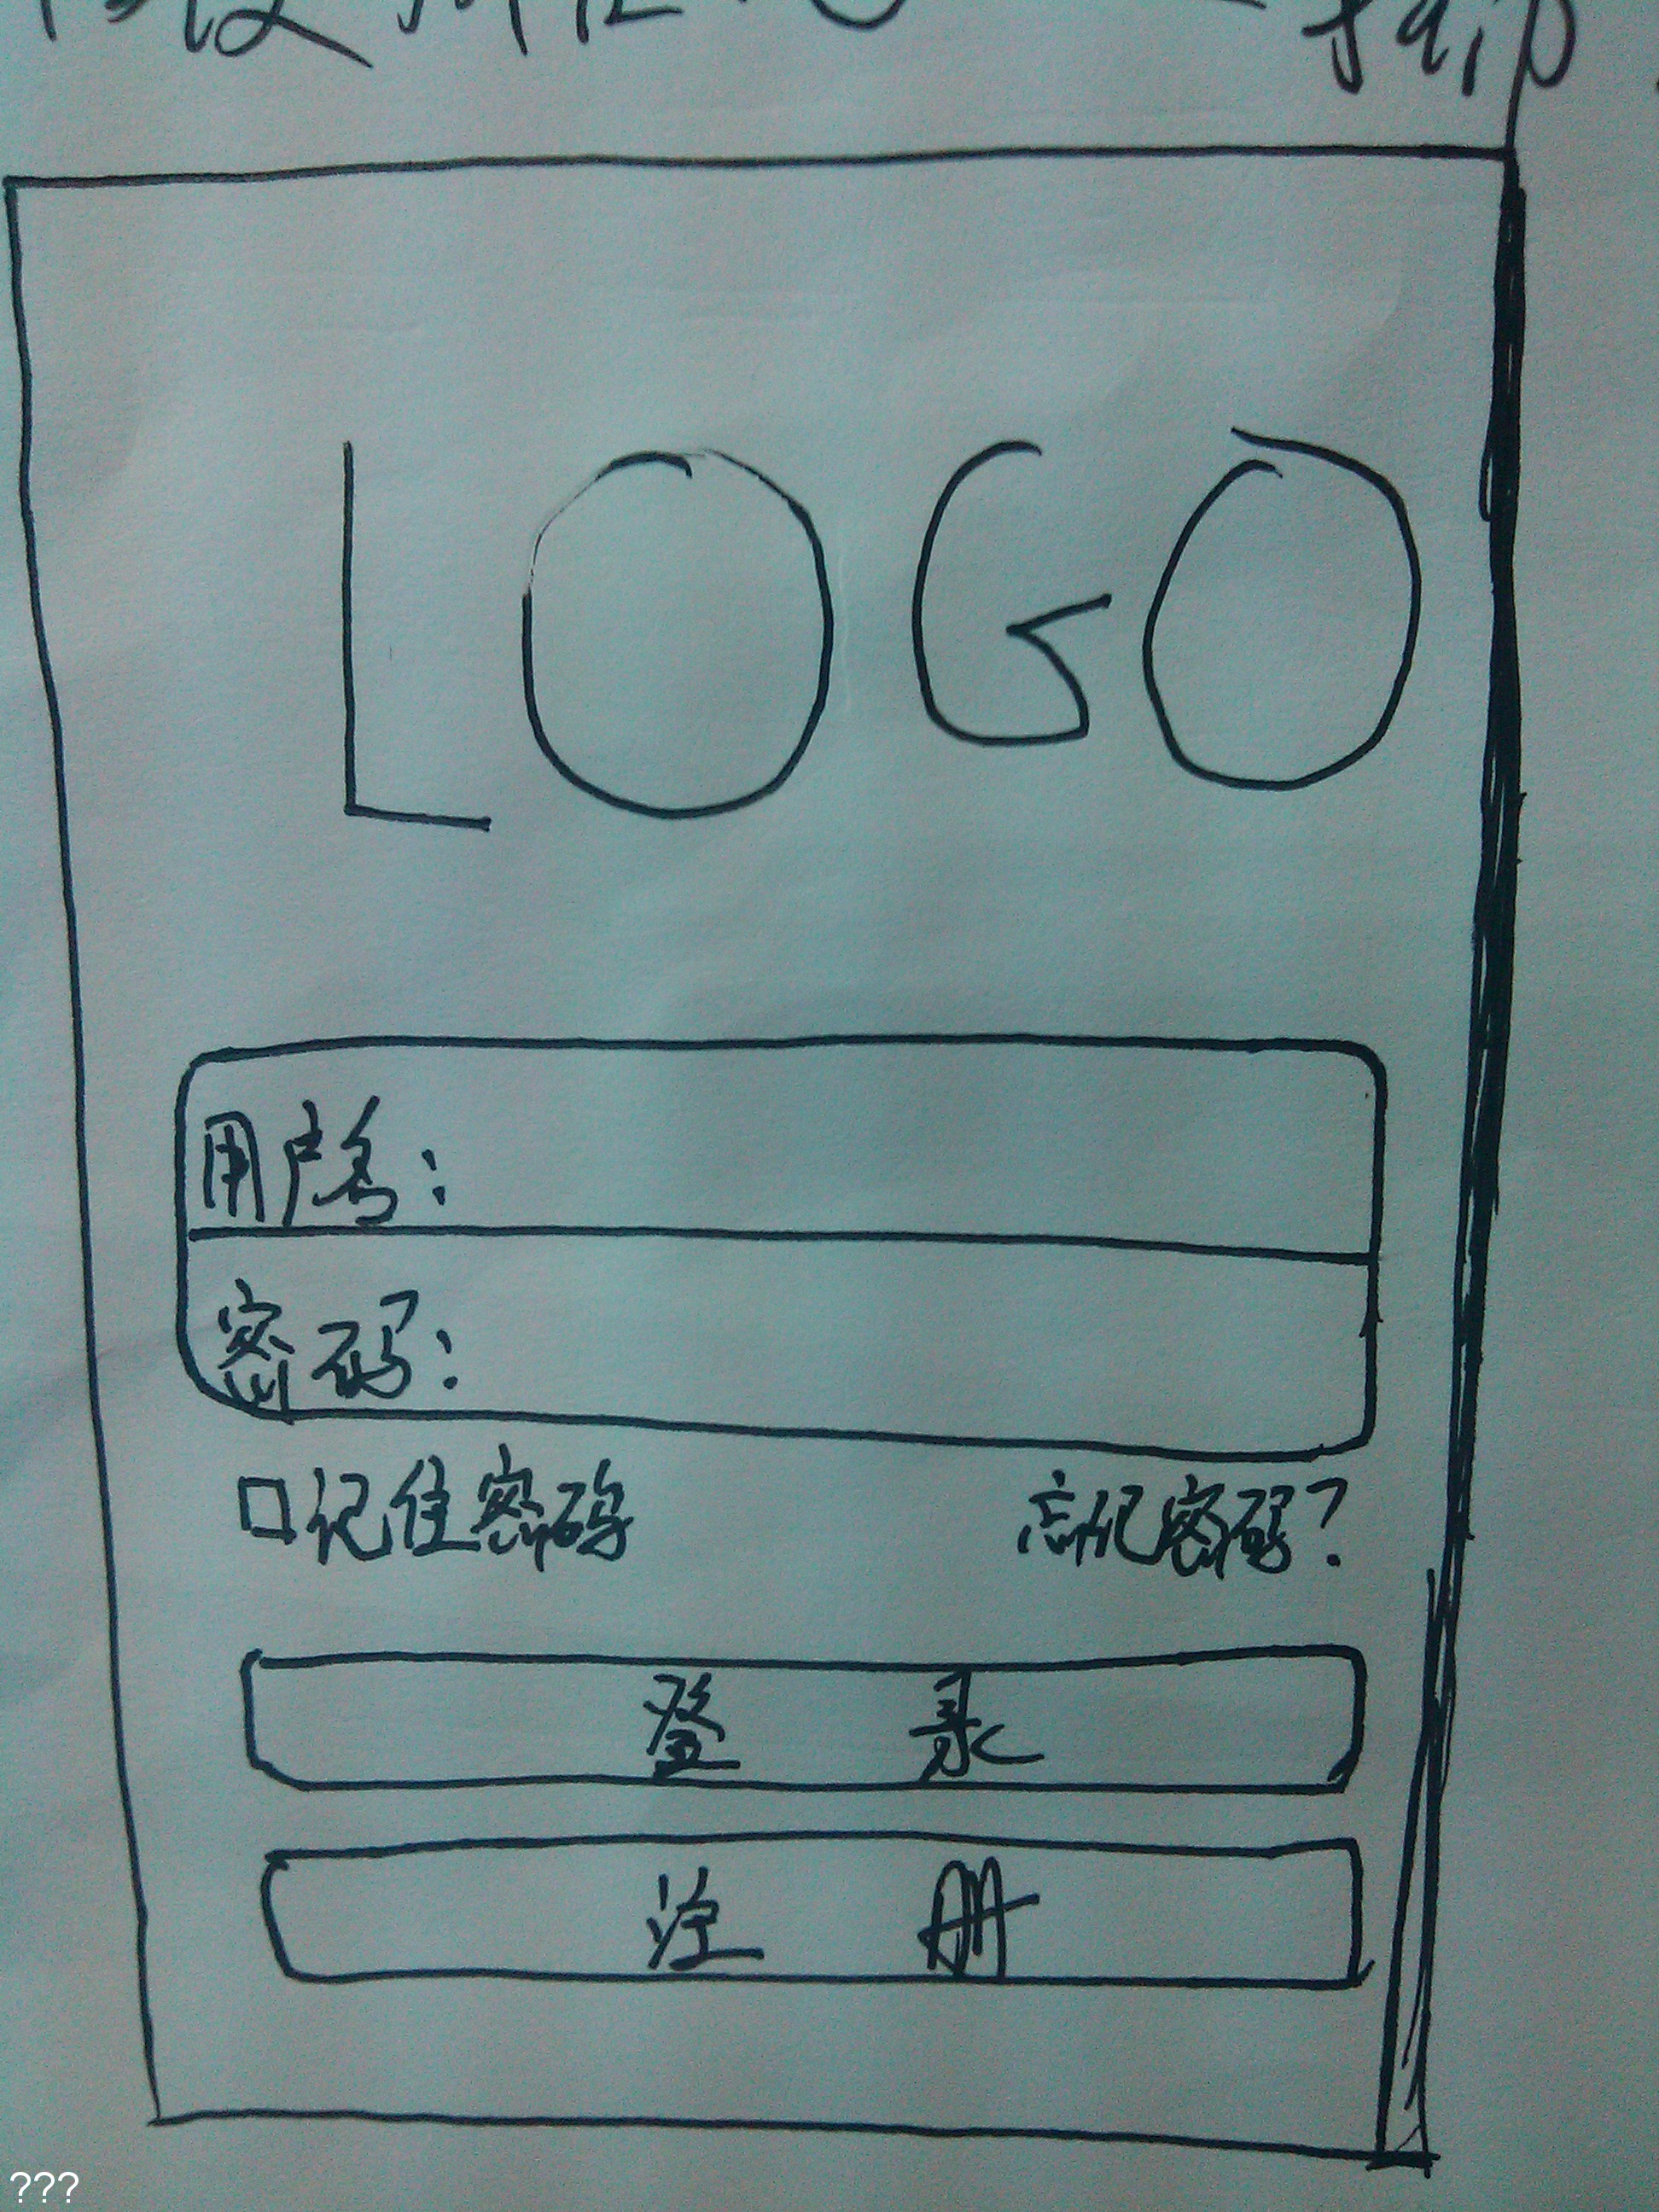 LOGO
用户名:
密码:
记住密码 忘记密码?
登 录
注 册
???